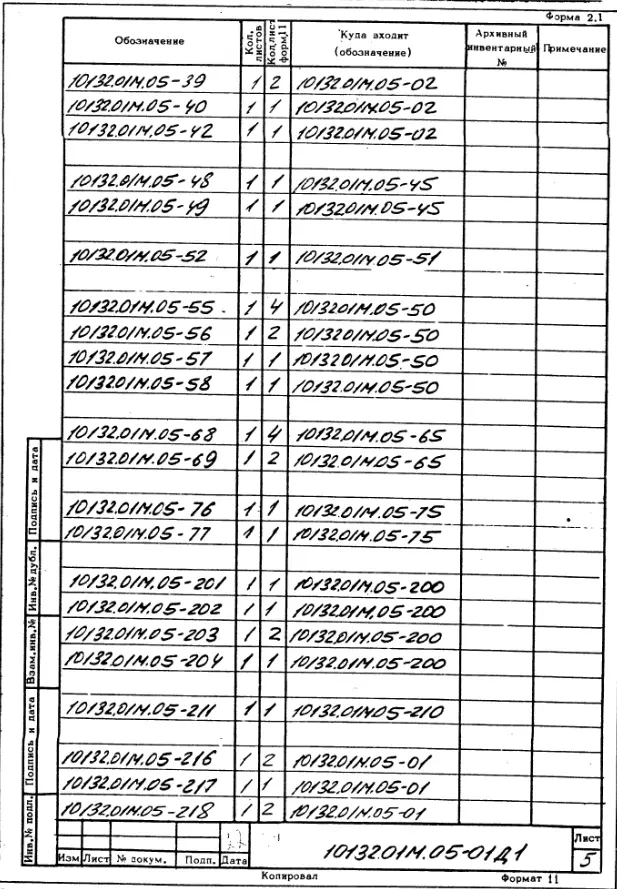 Форма 2.1
Обозначение Кол. листов Кол. лист форм.11 Куда входит (обозначение) Архивный инвентарный № Примечание
10132.01М.05-39 1 2 10132.01М.05-02
10132.01М.05-40 1 1 10132.01М.05-02
10132.01М.05-42 1 1 10132.01М.05-02
10132.01М.05-48 1 1 10132.01М.05-45
10132.01М.05-49 1 1 10132.01М.05-45
10132.01М.05-52 1 1 10132.01М.05-51
10132.01М.05-55 1 4 10132.01М.05-50
10132.01М.05-56 1 2 10132.01М.05-50
10132.01М.05-57 1 1 10132.01М.05-50
10132.01М.05-58 1 1 10132.01М.05-50
10132.01М.05-68 1 4 10132.01М.05-65
10132.01М.05-69 1 2 10132.01М.05-65
10132.01М.05-76 1 1 10132.01М.05-75
10132.01М.05-77 1 1 10132.01М.05-75
10132.01М.05-201 1 1 10132.01М.05-200
10132.01М.05-202 1 1 10132.01М.05-200
10132.01М.05-203 1 2 10132.01М.05-200
10132.01М.05-204 1 1 10132.01М.05-200
10132.01М.05-211 1 1 10132.01М.05-210
10132.01М.05-216 1 2 10132.01М.05-01
10132.01М.05-217 1 1 10132.01М.05-01
10132.01М.05-218 1 2 10132.01М.05-01
Подпись и дата
Инв.№ дубл.
Взам.инв.№
Подпись и дата
Инв.№ подл.
Изм Лист № докум. Подп. Дата
10132.01М.05-01Д1
Лист
5
Копировал Формат 11